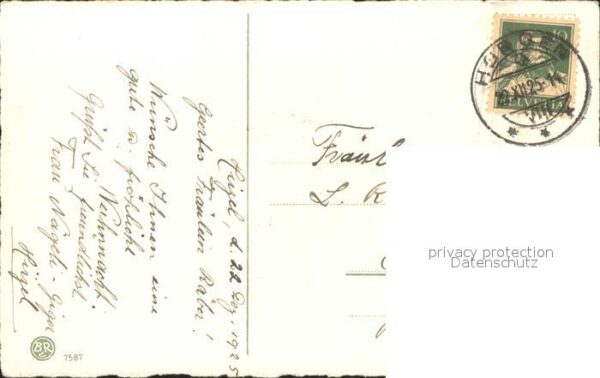 Hirzel, d. 22. Dez. 1925
Geertes Fräulein Räber!
Wünsche Ihnen eine
gute u. fröhliche
Weihnacht.
Grüsst Sie freundlichst
Frau Nägeli-Giger
Hirzel
Fräul
L. R
HORGEN
XII.25
HELVETIA
10
privacy protection
Datenschutz
BR
7587